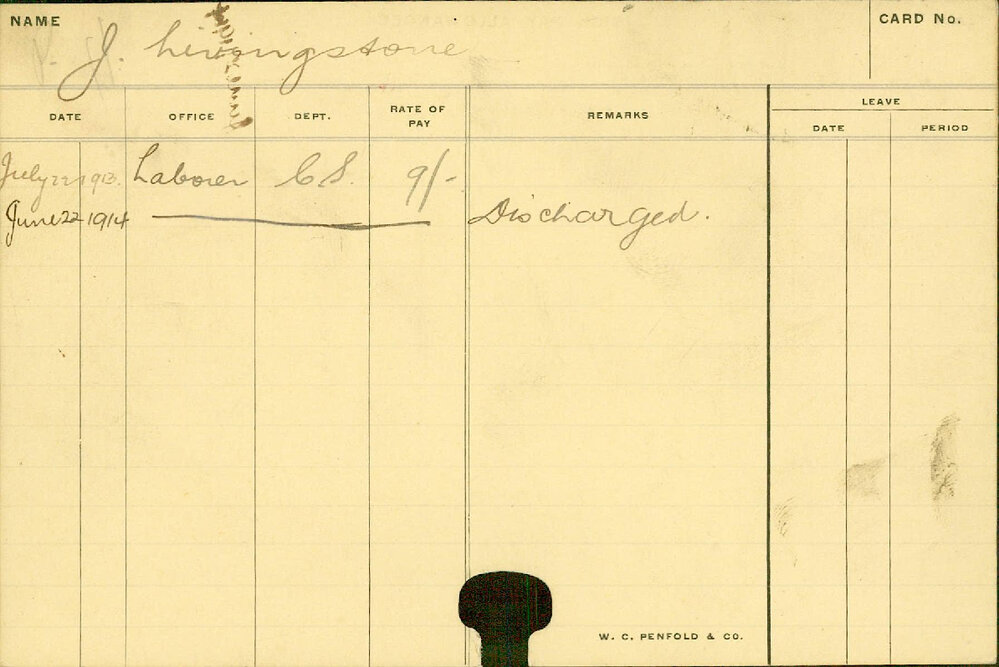 NAME
CARD No.
J. Livingstone
DATE OFFICE DEPT. RATE OF PAY REMARKS LEAVE
DATE PERIOD
July 22 1913. Laborer C.S. 9/-
June 22 1914 Discharged.
W. C. PENFOLD & CO.